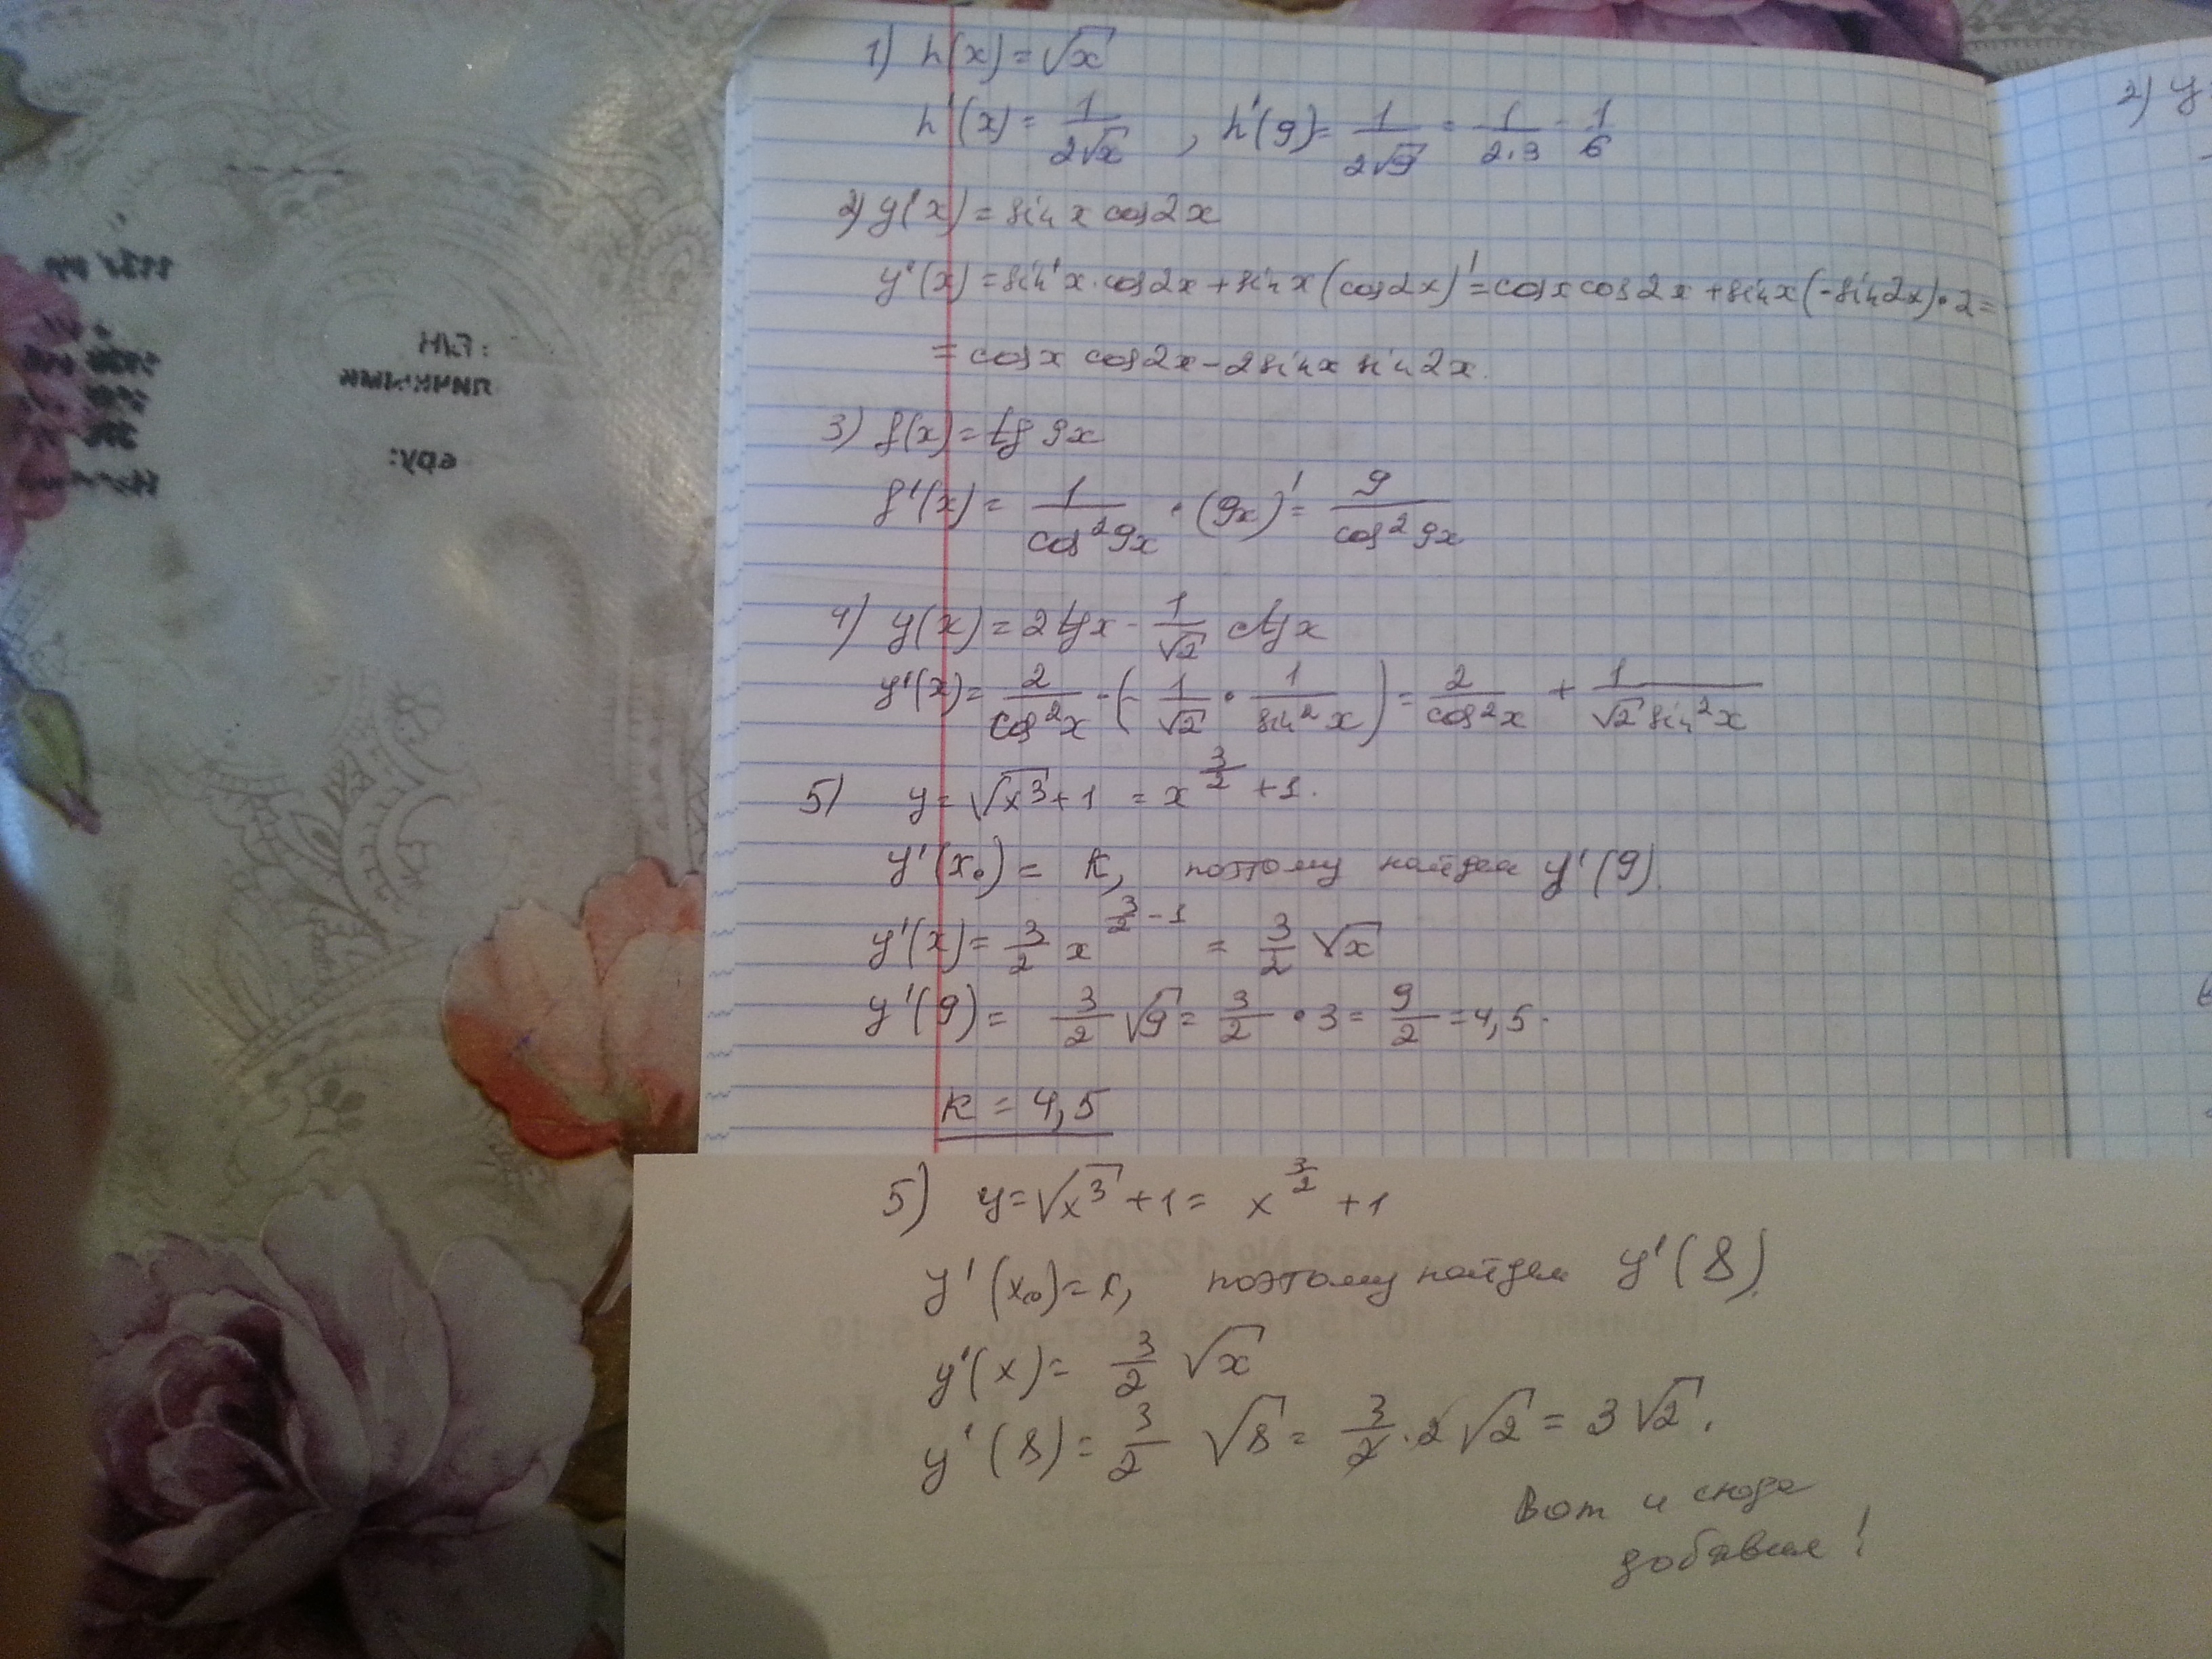 1) h(x) = √x
h'(x) = 1/(2√x) , h'(9) = 1/(2√9) = 1/(2·3) = 1/6
2) y(x) = sin x cos2x
y'(x) = sin'x · cos2x + sin x (cos2x)' = cosx cos2x + sin x (-sin2x) · 2 =
= cosx cos2x - 2sinx sin2x.
3) f(x) = tg 9x
f'(x) = 1/(cos²9x) · (9x)' = 9/(cos²9x)
4) y(x) = 2tgx - 1/√2 ctgx
y'(x) = 2/(cos²x) - (- 1/√2 · 1/(sin²x)) = 2/(cos²x) + 1/(√2 sin²x)
5) y = √x³ + 1 = x^(3/2) + 1.
y'(x₀) = k, поэтому найдем y'(9).
y'(x) = 3/2 x^(3/2 - 1) = 3/2 √x
y'(9) = 3/2 √9 = 3/2 · 3 = 9/2 = 4,5.
k = 4,5
5) y = √x³ + 1 = x^(3/2) + 1
y'(x₀) = k, поэтому найдем y'(8).
y'(x) = 3/2 √x
y'(8) = 3/2 √8 = 3/2 · 2√2 = 3√2.
Вот и сюда
добавил!
2) y